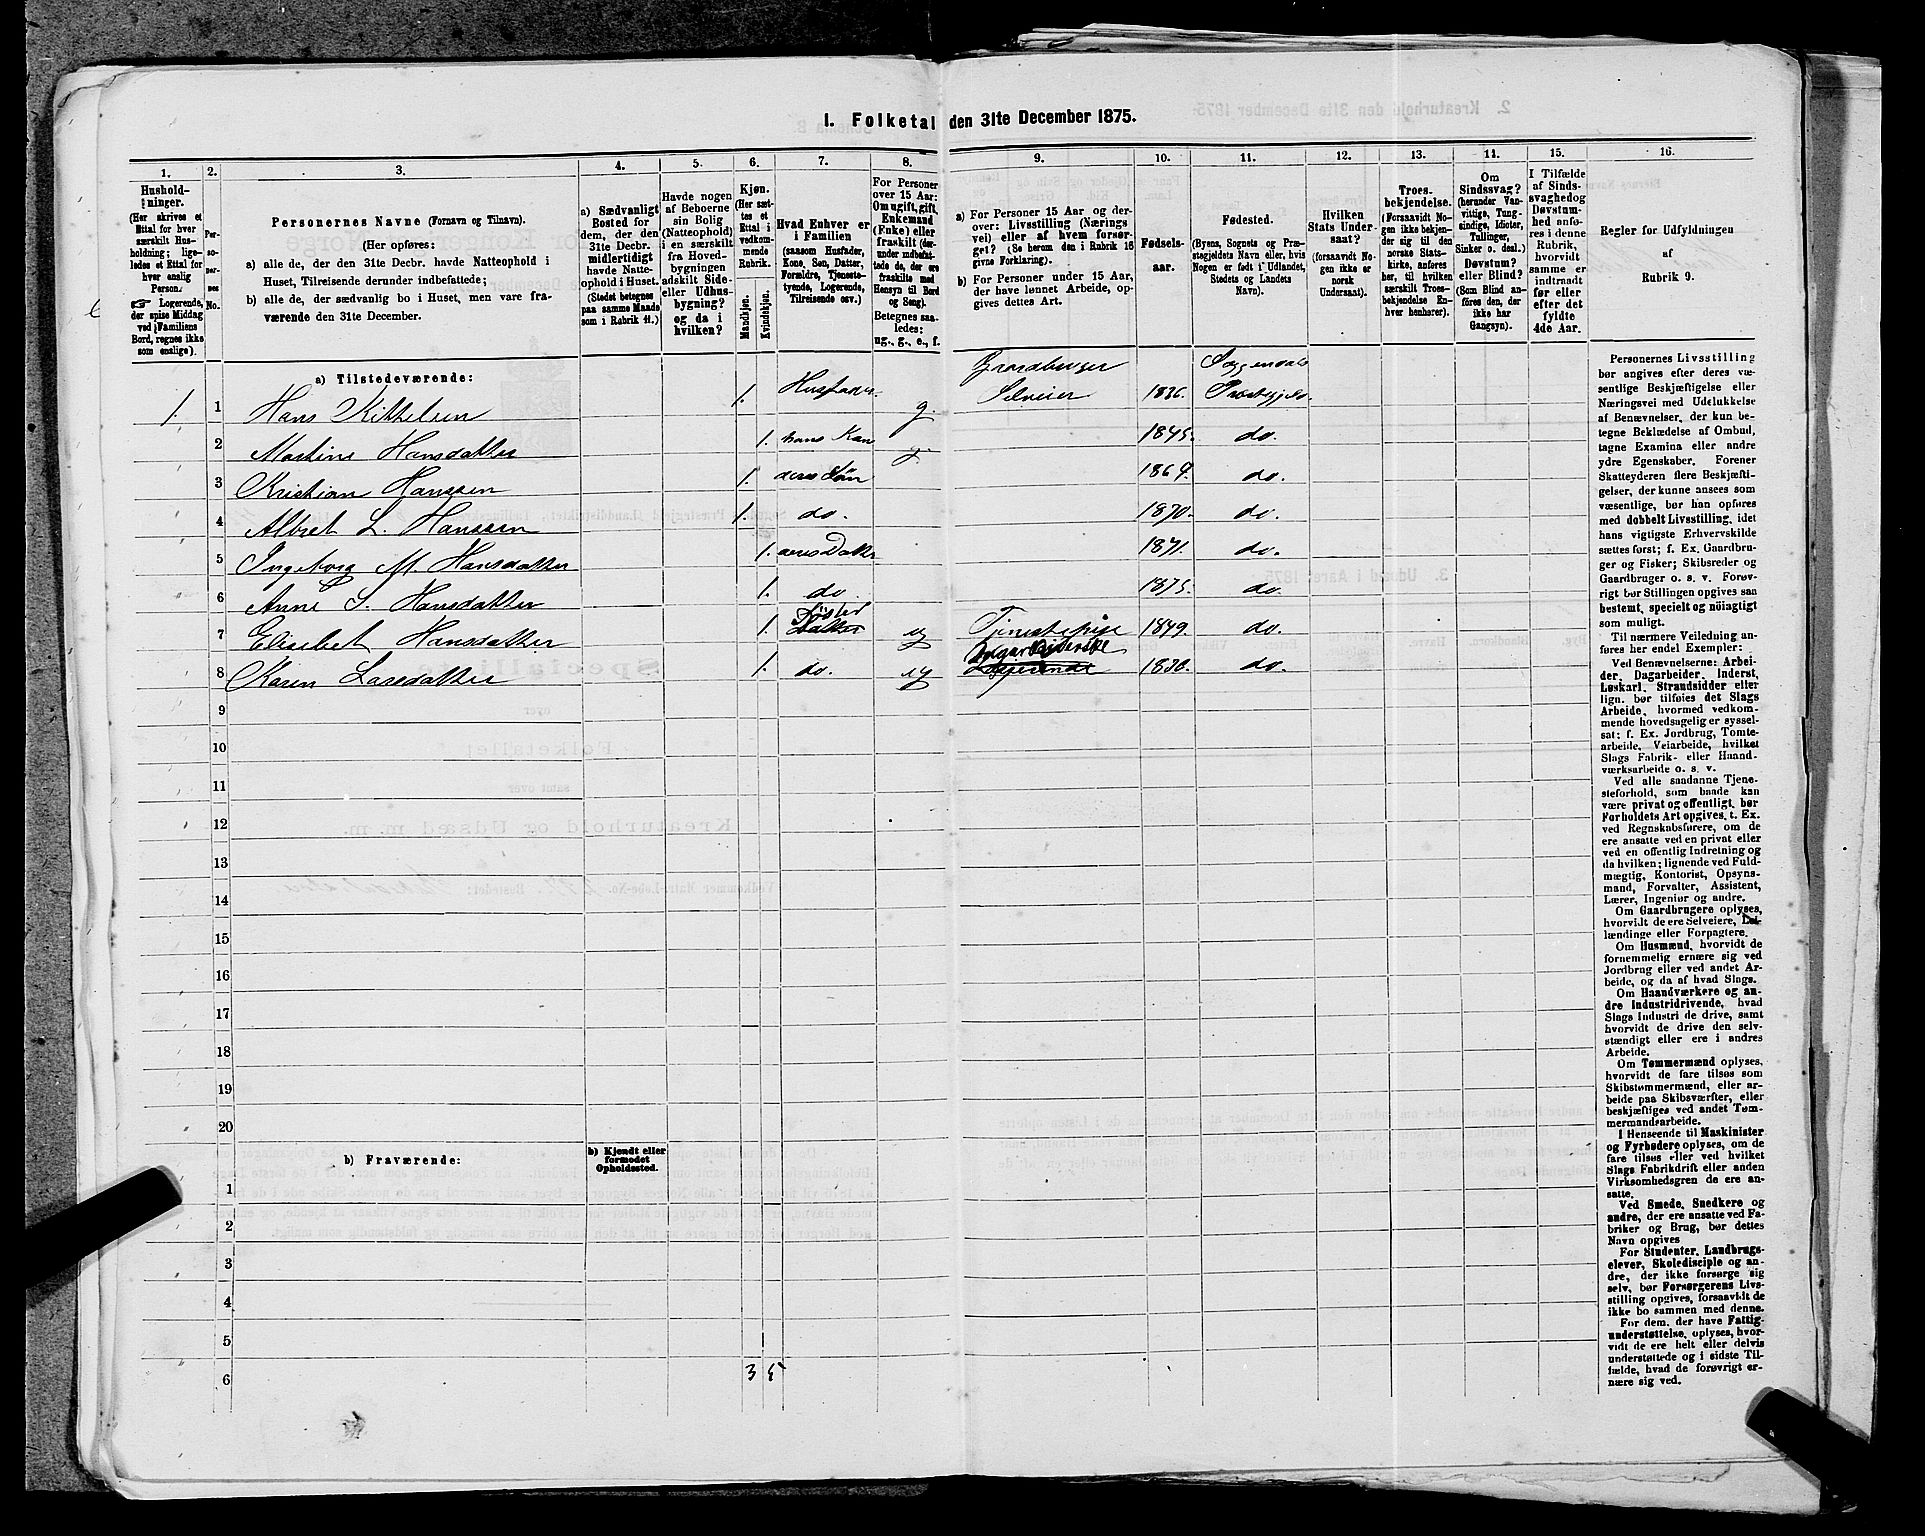 1. Folketal den 31te December 1875.
1. 2. 3. 4. 5. 6. 7. 8. 9. 10. 11. 12. 13. 14. 15. 16.
Hushold-
ninger.
(Her skrives et
Ettal for hver
særskilt Hus-
holdning; lige-
ledes et Ettal for
hver enslig
Person.
☞ Logerende,
der spise Middag
ved Familiens
Bord, regnes ikke
som enslige).
Per-
so-
ner-
nes
No.
Personernes Navne (Fornavn og Tilnavn).
(Her opføres:
a) alle de, der den 31te Decbr. havde Natteophold i
Huset, Tilreisende derunder indbefattede;
b) alle de, der sædvanlig bo i Huset, men vare fra-
værende den 31te December.
a) Sædvanligt
Bosted for
dem, der den
31te Decbr.
midlertidigt
havde Natte-
ophold i Huset.
(Stedet betegnes
paa samme Maade
som i Rubrik 11.)
Havde nogen
af Beboerne
sin Bolig
(Natteophold)
i en særskilt
fra Hoved-
bygningen
adskilt Side-
eller Udhus-
bygning?
og da i
hvilken?
Kjøn.
(Her sæt-
tes et
Ettal i
vedkom-
mende
Rubrik.
Mandkjøn.
Kvindekjøn.
Hvad Enhver er
i Familien
(saasom Husfader,
Kone, Søn, Datter,
Forældre, Tjeneste-
tyende, Logerende,
Tilreisende osv.)
For Personer
over 15 Aar:
Om ugift, gift,
Enkemand
(Enke) eller
fraskilt (der-
under indbefat-
tede de, der ere
fraskilte med
Hensyn til Bord
og Seng).
Betegnes saa-
ledes:
ug., g., e., f.
a) For Personer 15 Aar og der-
over: Livsstilling (Nærings
vei) eller af hvem forsør-
get? (Se herom den i Rubrik 16
givne Forklaring).
b) For Personer under 15 Aar,
der have lønnet Arbeide, op-
gives dettes Art.
Fødsels-
aar.
Fødested.
(Byens, Sognets og Præ-
stegjeldets Navn eller, hvis
Nogen er født i Udlandet,
Stedets og Landets
Navn).
Hvilken
Stats Under-
saat?
(forsaavidt No-
gen ikke er
norsk
Undersaat).
Troes-
bekjendelse.
(Forsaavidt No-
gen ikke bekjen-
der sig til den
norske Stats-
kirke, anføres
her, til hvilken
særskilt Troes-
bekjendelse En-
hver henhører).
Om
Sindssvag?
(herunder Van-
vittige, Tung-
sindige, Idioter,
Tullinger,
Sinker o. desl.)
Døvstum?
eller Blind?
(Som Blind an-
føres den, der
ikke har
Gangsyn).
I Tilfælde
af Sinds-
svaghed og
Døvstum-
hed anfø-
res i denne
Rubrik,
hvorvidt
samme er
indtraadt
før eller
efter det
fyldte
4de Aar.
Regler for Udfyldningen
af
Rubrik 9.
a) Tilstedeværende:
1. 1 Hans Kittelsen 1. Husfader. g. Gaardbruger Selveier 1836. Soggendals Præstegjeld.
2 Martine Hansdatter 1. hans Kone g. 1845. do.
3 Kristian Hanssen 1. deres Søn 1869. do.
4 Albret L. Hanssen 1. do. 1870. do.
5 Ingeborg M. Hansdatter 1. deres Datter 1871. do.
6 Anne S. Hansdatter 1. do. 1875. do.
7 Elisabet Hansdatter 1. Datter Søster ug Tjenestepige 1849. do.
8 Karen Larsdatter 1. do. ug Logerende 1830. do.
9
10
11
12
13
14
15
16
17
18
19
20
b) Fraværende:
b) Kjendt eller
formodet
Opholdssted.
1
2
3
4
5
6
3 5
Personernes Livsstilling
bør angives efter deres væ-
sentlige Beskjæftigelse eller
Næringsvei med Udelukkelse
af Benævnelser, der kun be-
tegne Beklædelse af Ombud,
tagne Examina eller andre
ydre Egenskaber. Forener
Skatteyderen flere Beskjæfti-
gelser, der kunne ansees som
væsentlige, bør han opføres
med dobbelt Livsstilling, idet
hans vigtigste Erhvervskilde
sættes først; f. Ex. Gaardbru-
ger og Fisker; Skibsreder og
Gaardbruger o. s. v. Forøv-
rigt bør Stillingen opgives saa
bestemt, specielt og nöiagtigt
som muligt.
Til nærmere Veiledning an-
føres her endel Exempler:
Ved Benævnelserne: Arbei-
der, Dagarbeider, Inderst,
Løskarl, Strandsidder eller
lign. bør tilføies det Slags
Arbeide, hvormed vedkom-
mende hovedsagelig er syssel-
sat; f. Ex. Jordbrug, Tomte-
arbeide, Veiarbeide, hvilket
Slags Fabrik- eller Haand-
værksarbeide o. s. v.
Ved alle saadanne Tjene-
steforhold, som baade kan
være privat og offentligt, bør
Forholdets Art opgives, t. Ex.
ved Regnskabsførere, om de
ere ansatte ved en privat eller
ved en offentlig Indretning og
da hvilken; lignende ved Fuld-
mægtig, Kontorist, Opsyns-
mand, Forvalter, Assistent,
Lærer, Ingeniør og andre.
Om Gaardbrugere oplyses,
hvorvidt de ere Selveiere, Lei-
lændinge eller Forpagtere.
Om Husmænd, hvorvidt de
fornemmelig ernære sig ved
Jordbrug eller ved andet Ar-
beide, og da af hvad Slags.
Om Haandværkere og an-
dre Industridrivende, hvad
Slags Industri de drive, samt
hvorvidt de drive den selv-
stændigt eller ere i andres
Arbeide.
Om Tømmermænd oplyses,
hvorvidt de fare tilsøs som
Skibstømmermænd, eller ar-
beide paa Skibsværfter, eller
beskjæftiges ved andet Tøm-
mermandsarbeide.
I Henseende til Maskinister
og Fyrbødere oplyses, om de
fare tilsøs eller ved hvilket
Slags Fabrikdrift eller anden
Virksomhedsgren de ere an-
satte.
Ved Smede, Snedkere og
andre, der ere ansatte ved Fa-
briker og Brug, bør dettes
Navn opgives
For Studenter, Landbrugs-
elever, Skoledisciple og an-
dre, der ikke forsørge sig
selv, bør Forsørgerens Livs-
stilling opgives, forsaavidt de
ikke bo sammen med denne.
For dem, der have Fattig-
understøttelse, oplyses, hvor-
vidt de ere helt eller delvis
understøttede og i sidste Til-
fælde, hvad de forøvrigt er-
nære sig ved.